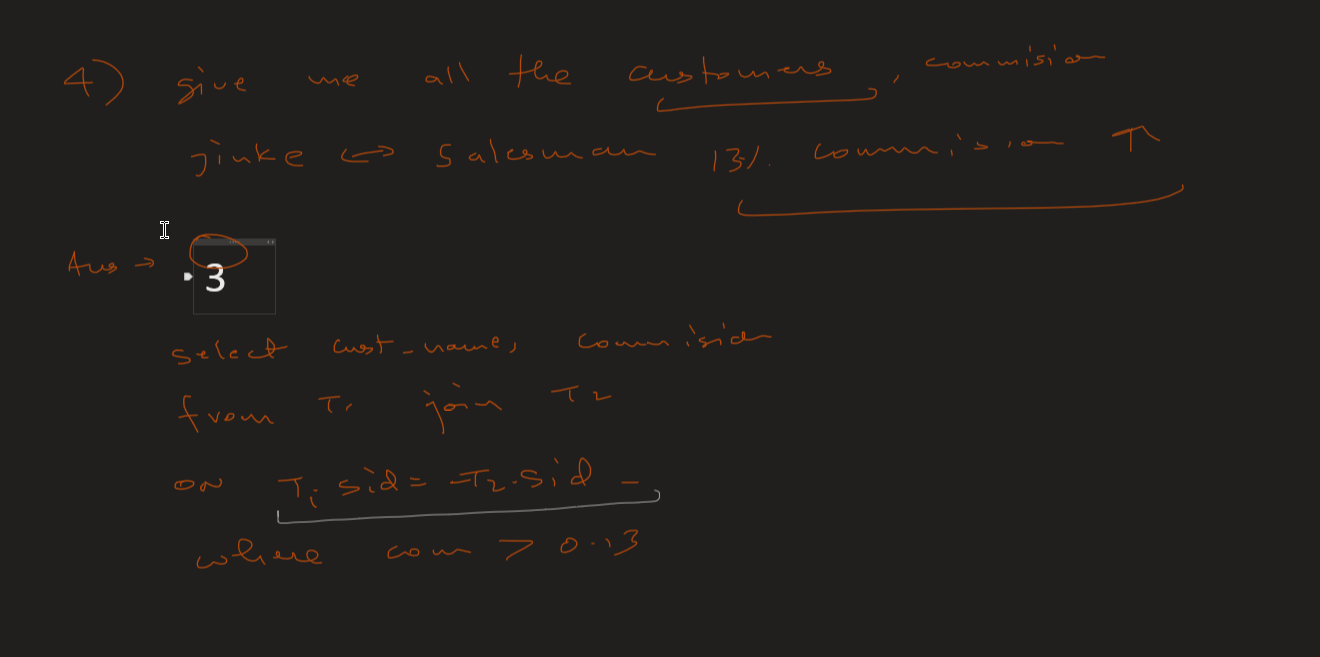 4) give me all the customers, commision
jinke <-> salesman 13%. commision ↑
Ans →
3
select cust_name, commision
from T1 join T2
on T1.sid = T2.sid
where com > 0.13